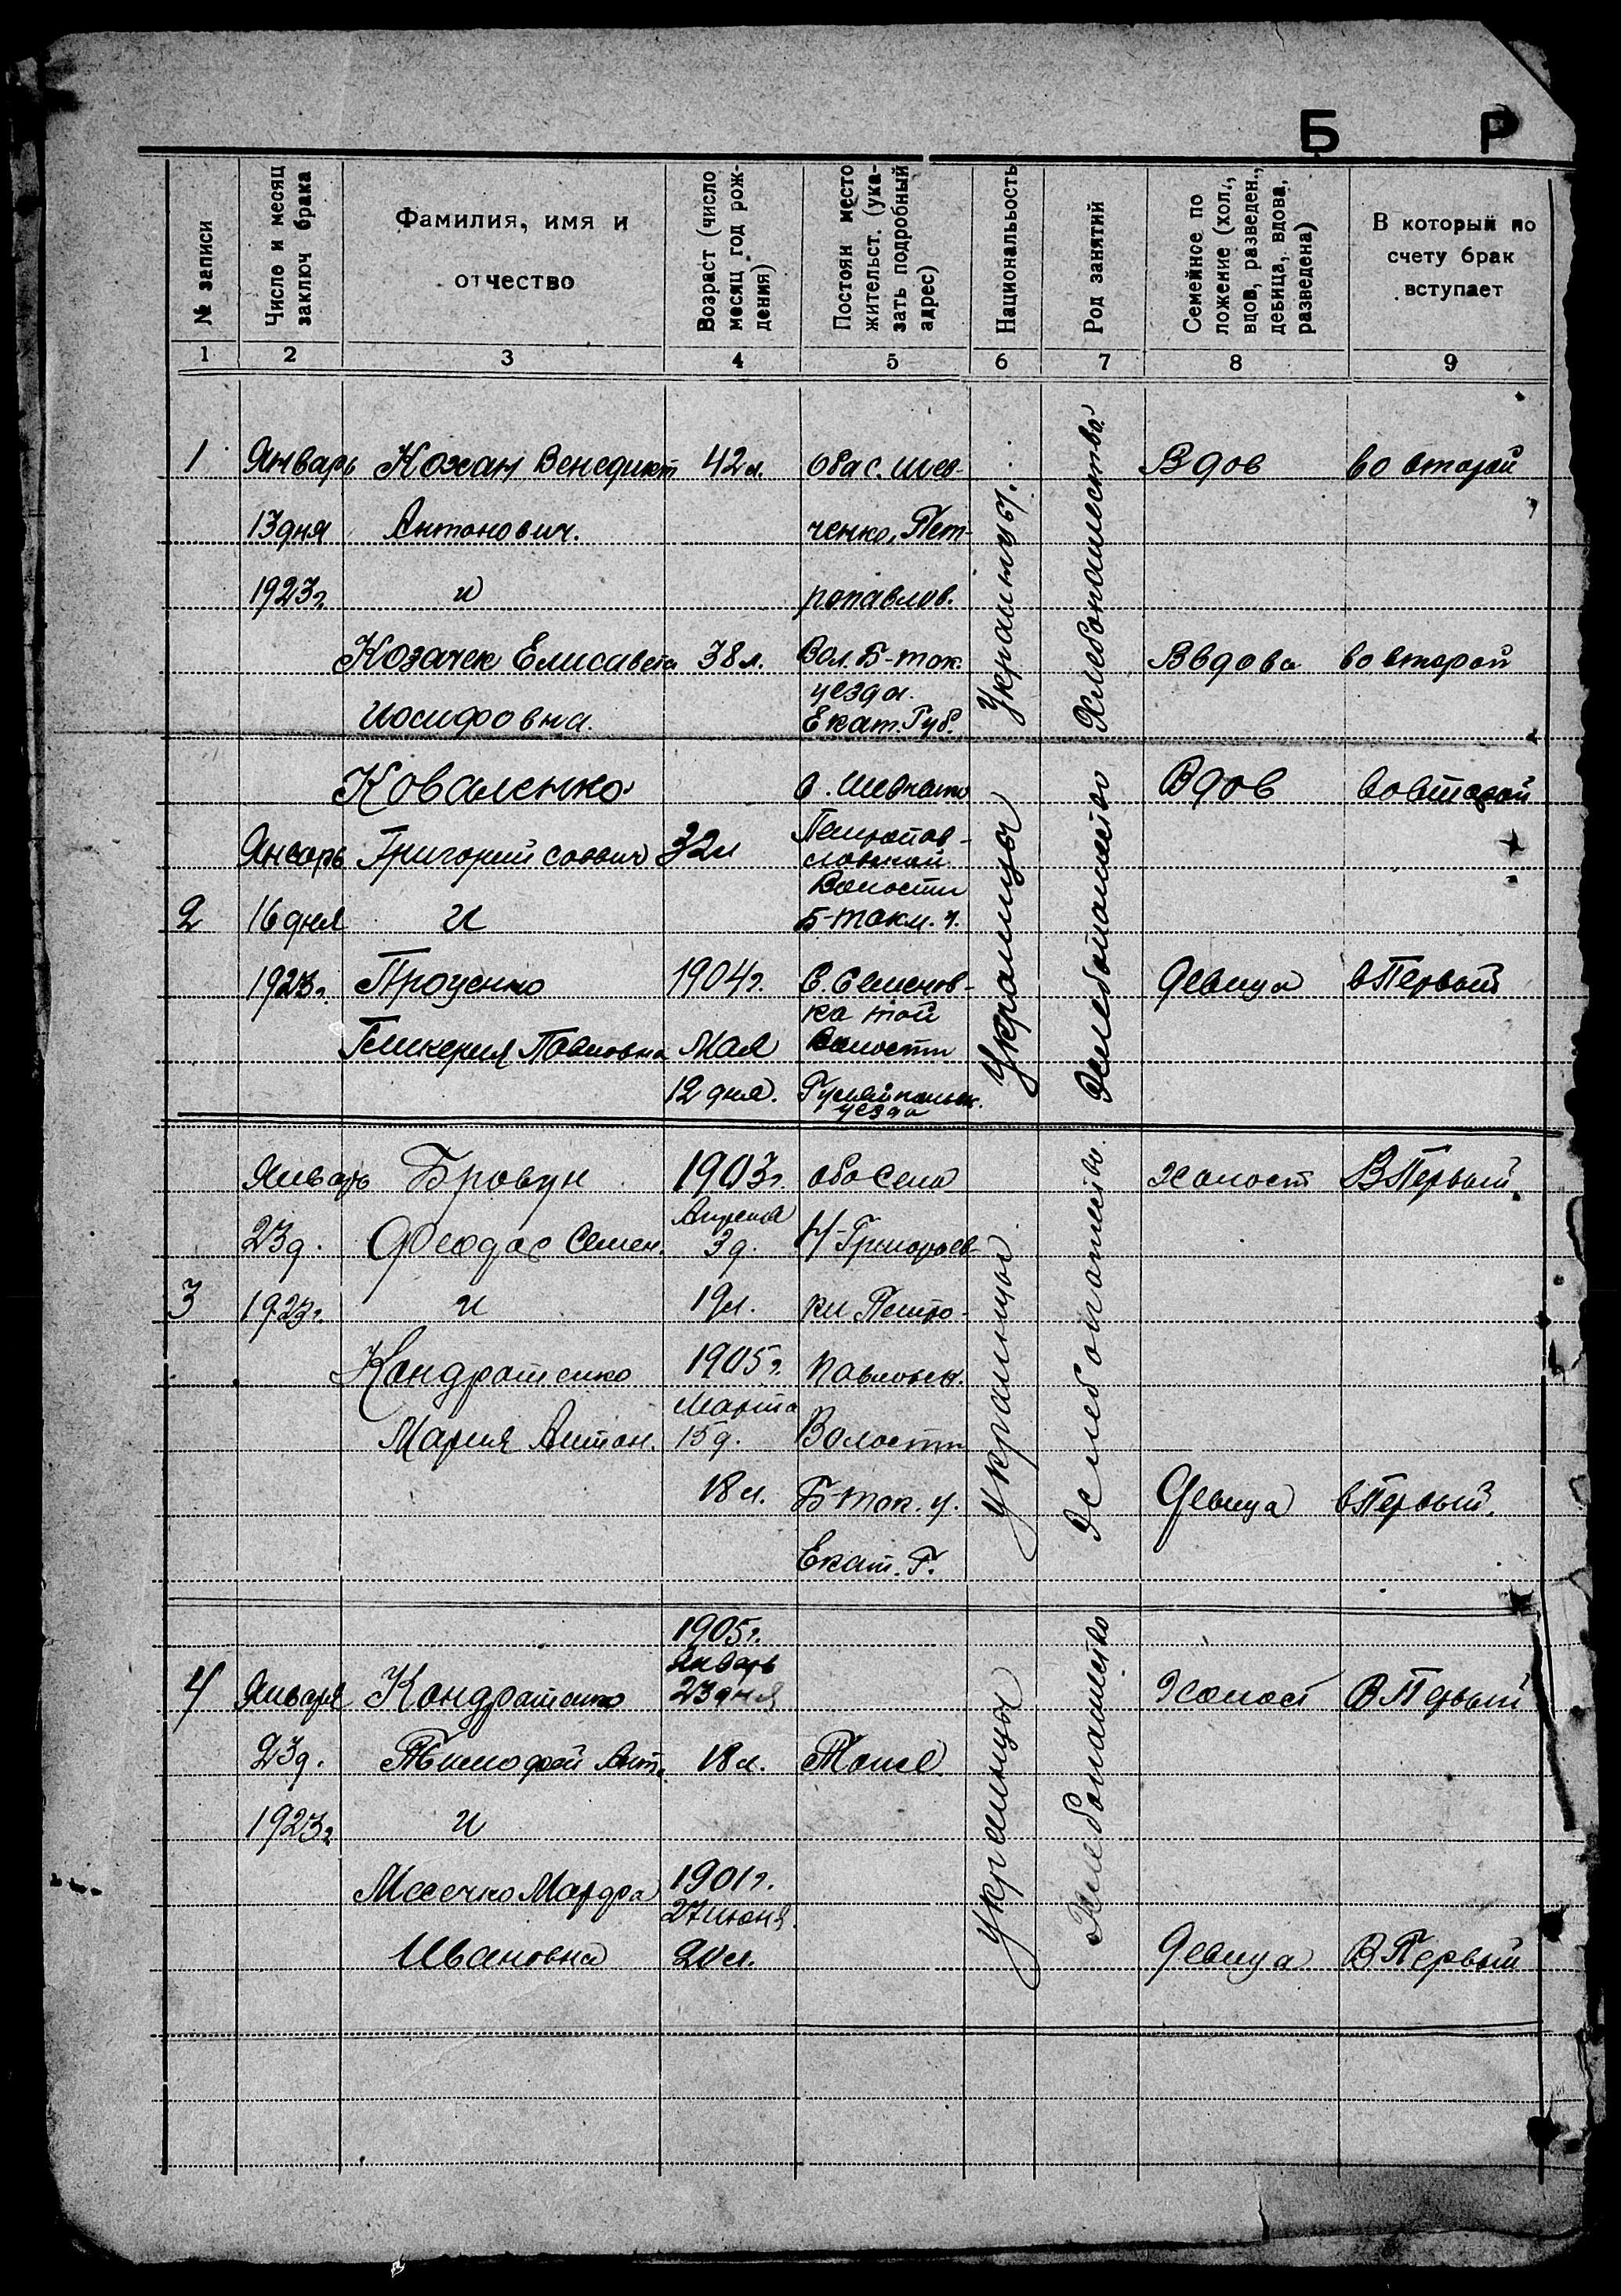 Б Р
№ записи
Число и месяц заключ брака
Фамилия, имя и отчество
Возраст (число месяц год рождения)
Постоян место жительст. (указать подробный адрес)
Национальность
Род занятий
Семейное положение (хол., вдов, разведен., девица, вдова, разведена)
В который по счету брак вступает
1 2 3 4 5 6 7 8 9
1 Январь Кохан Венедикт 42 л. оба с. Шев- Вдов во второй
13 дня Антонович. ченко, Пет-
1923 г. и ропавлов.
Козачек Елисавета 38 л. Вол. Б-ток. Вдова во второй
уезда.
Иосифовна. Екат. Губ.
Украинцы.
Хлебопашество.
Коваленко с. Вдов во второй
Январь Григорий Саввич 32 л Петропав-
ловской
Волости
2 16 дня и Б-токм. у.
1923 г. Проценко 1904 г. С. Семенов- Девица в Первый
ка той
Гликерия Павловна Мая Волости
12 дня. Гуляйпольск.
уезда
Украинцы
Хлебопашество
Январь Бровун 1903 г. оба Села Холост В Первый.
Апреля
23 д. Феодос Семен. 3 д. Н-Григорьев-
3 1923 г. и 19 л. ки Петро-
Кондратенко 1905 г. павловск.
Марта
Мария Антон. 15 д. Волости
18 л. Б-ток. у. Девица в Первый.
Екат. Г.
Украинцы
Хлебопашество.
1905 г.
Январь
4 Января Кондратенко 23 дня Холост В Первый
23 д. Тимофей Ант. 18 л. Тоже
1923 г. и
Марфа 1901 г.
27 июня
Ивановна 20 л. Девица В Первый
Украинцы
Хлебопашество